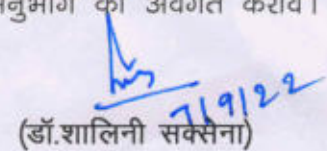 अनुभाग को अवगत करावें।
7/9/22
(डॉ.शालिनी सक्सेना)